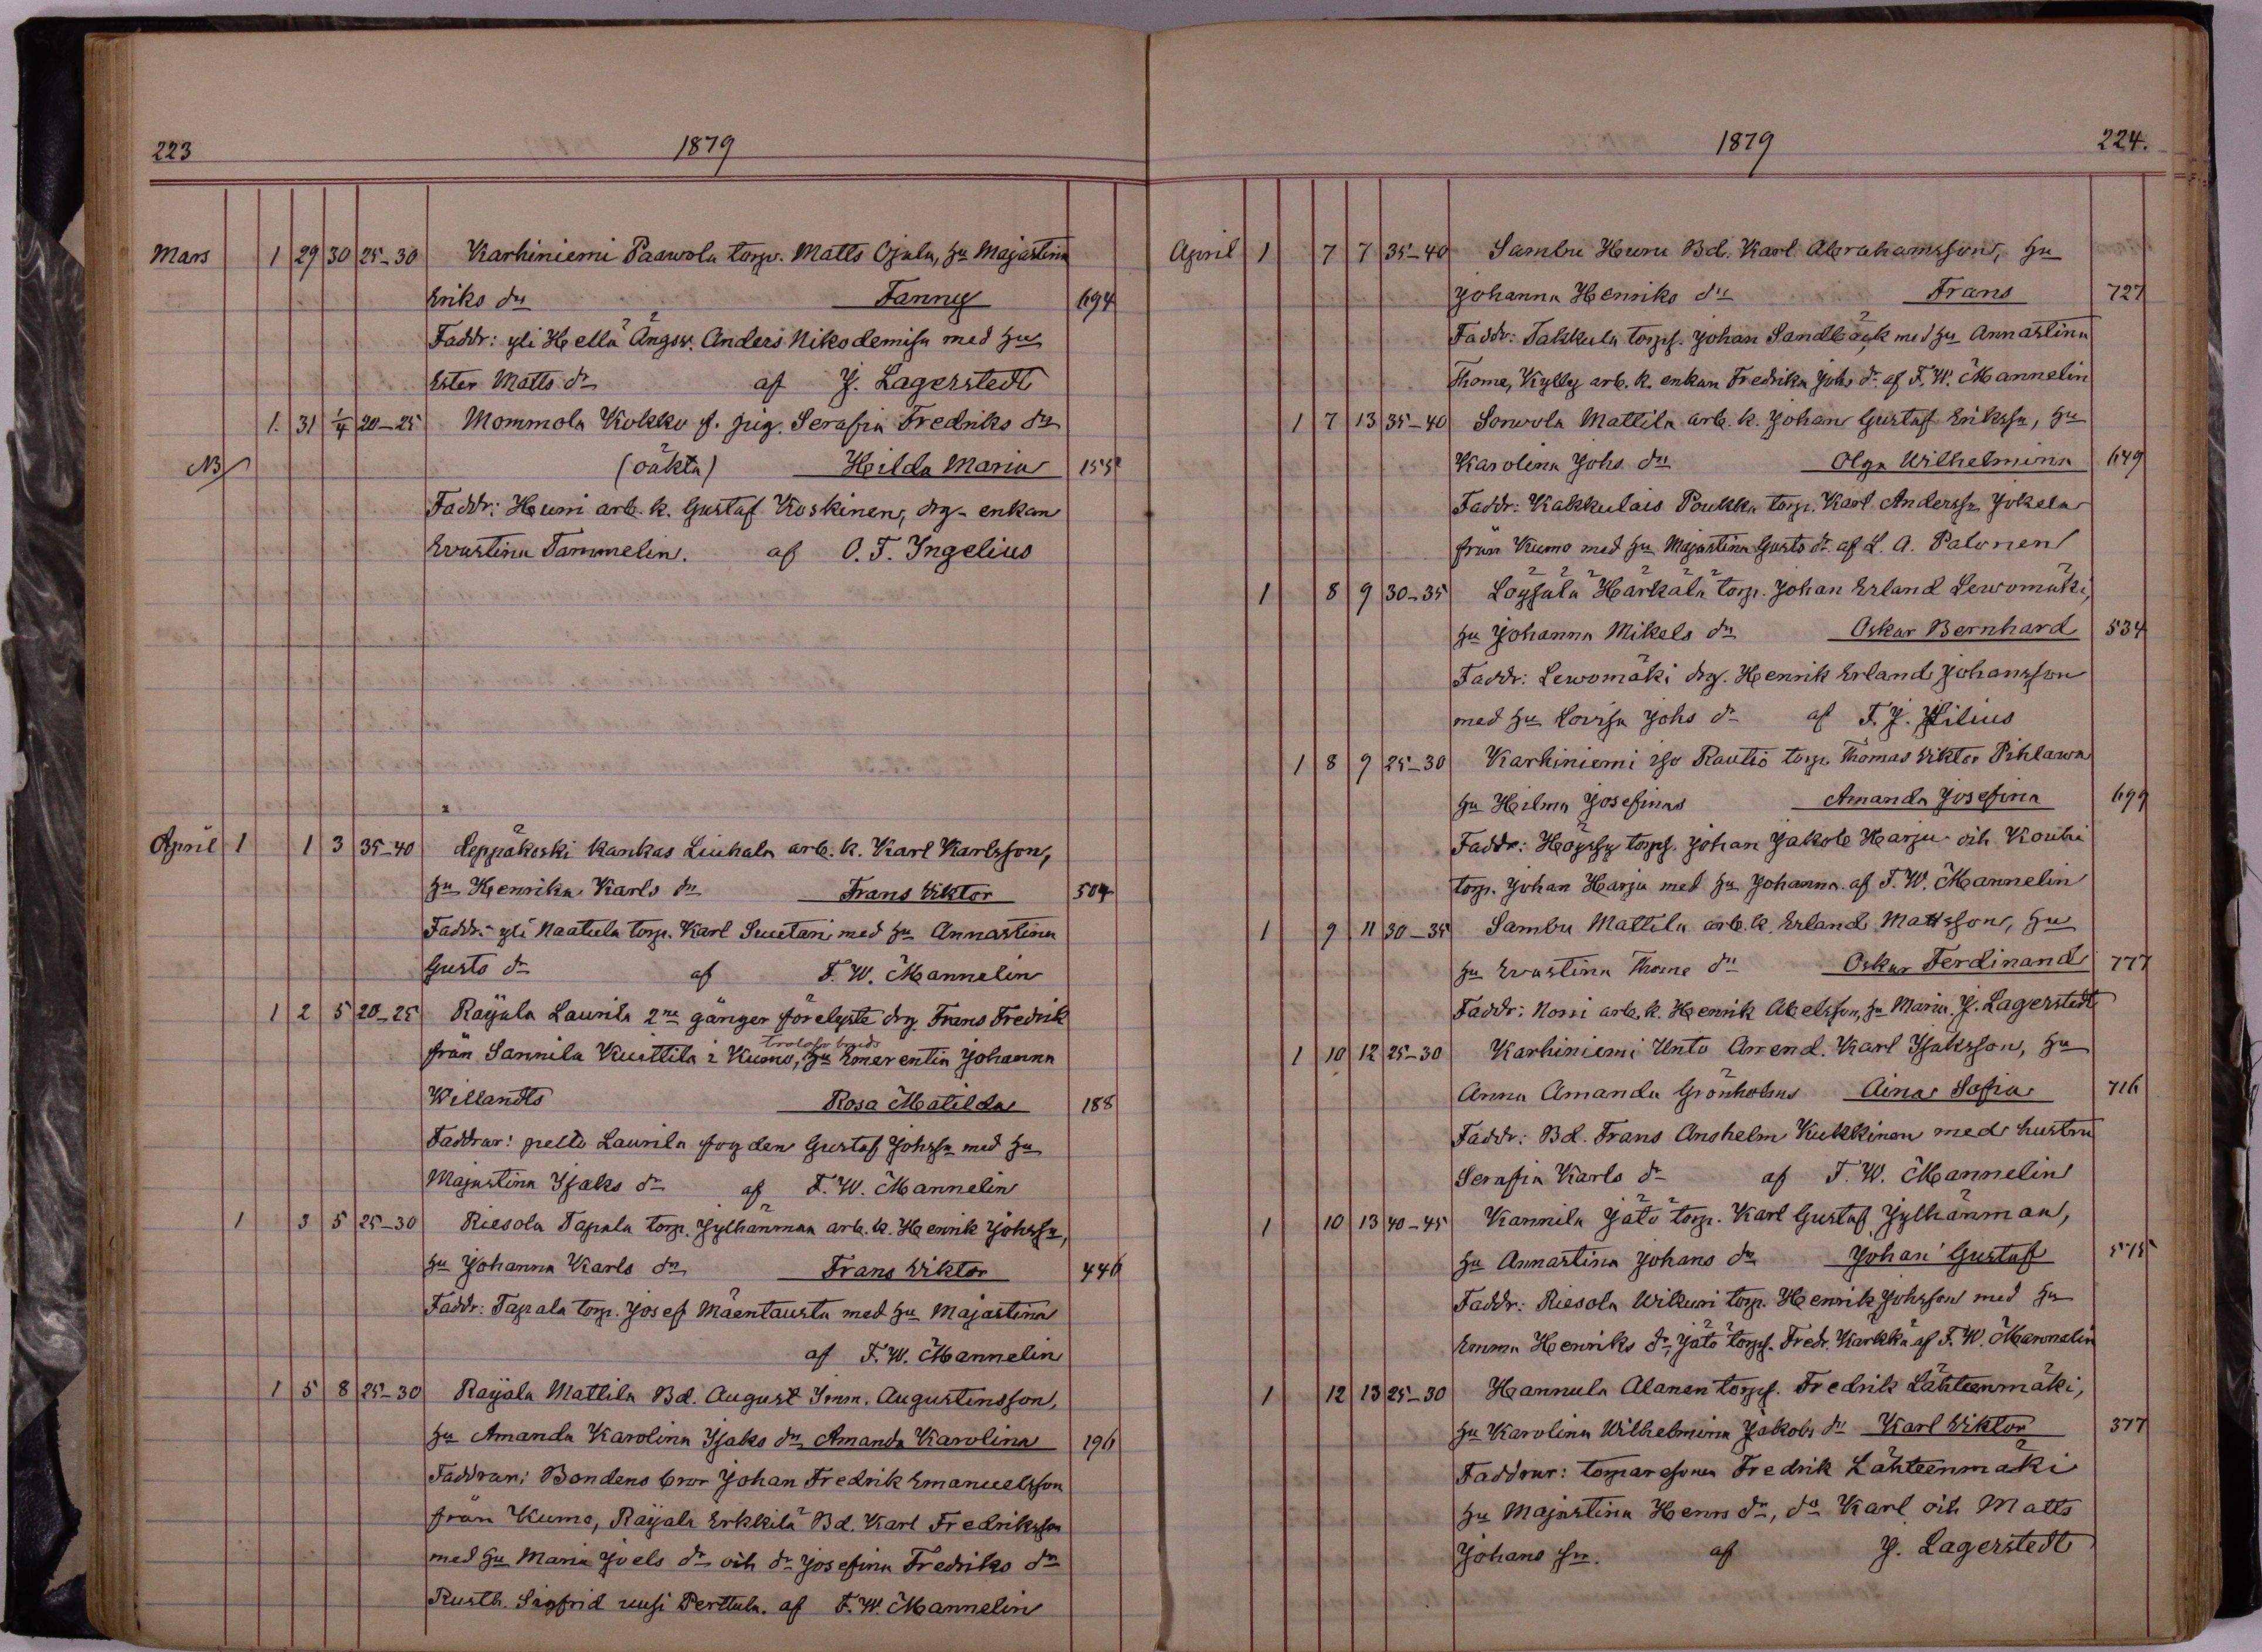 223 1879
Mars 1 29 30 25-30 Karhiniemi Paavola torp. Matts Ojala, hu Majastina
Eriks dr Fanny 694
Faddr: yli Hellä Ängsv. Anders Nikodemisn med hu
Ester Matts dr af J. Lagerstedt
1. 31 1/4 20-25 Mommola Kokko f. pig. Serafia Fredriks dr
NB (oäkta) Hilda Maria 155
Faddr: Heuri arb. k. Gustaf Koskinen, drg. enkan
Evastina Tammelin. af O. F. Ingelius
April 1 1 3 35-40 Leppäkoski Kankas Liuhala arb. k. Karl Karlsson,
hu Henrika Karls dr Frans Viktor 504
Faddr: yli Naatula torp. Karl Suutari med hu Annastina
Gusts dr af F. W. Mannelin
1 2 5 20-25 Raijala Laurila 2ne gånger förelyste drg Frans Fredrik
trolofv bruds
från Sannila Kusttila i Kumo, hu Emerentia Johanna
Willandts Rosa Matilda 188
Faddrar: pelto Laurila fogden Gustaf Johssn med hu
Majastina Isaks dr af F. W. Mannelin
1 3 5 25-30 Riesola Tapala torp. Jylhänmaa arb. k. Henrik Johssn,
hu Johanna Karls dr Frans Viktor 446
Faddr: Tapala torp. Josef Mäentausta med hu Majastina
af F. W. Mannelin
1 5 8 25-30 Raijala Mattila Bd. August Imm. Augustinsson,
hu Amanda Karolina Isaks dr Amanda Karolina 196
Faddrar: Bondens bror Johan Fredrik Emanuelsson
från Kumo, Raijala Erkkilä Bd. Karl Fredriksson
med hu Maria Joels dr och dr Josefina Fredriks dr
Rusth. Sigfrid uusi Perttula. af F. W. Mannelin
1879 224.
April 1 7 7 35-40 Sambu Heuru Bd. Karl Abrahamsson, hu
Johanna Henriks dr Frans 727
Faddr: Takkula torpf. Johan Sandbäck med hu Annastina
Thome, Kylly arb. k. enkan Fredrika Johs dr af F. W. Mannelin
1 7 13 35-40 Sorvola Mattila arb. k. Johan Gustaf Erikssn, hu
Karolina Johs dr Olga Wilhelmina 649
Faddr: Kakkulais Poukka torp. Karl Anderssn Jokela
från Kumo med hu Majastina Gusts dr af L. A. Palonen
1 8 9 30-35 Löysälä Härkälä torp. Johan Erland Lewomäki,
hu Johanna Mikels dr Oskar Bernhard 534
Faddr: Lewomäki drg. Henrik Erland Johansson
med hu Lovisa Johs dr af F. J. Hilius
1 8 9 25-30 Karhiniemi iso Rautio torp. Thomas Viktor Pihlawa
hu Hilma Josefinas Amanda Josefina 699
Faddr: Höyssy torpf. Johan Jakob Harju och Kouhi
torp. Johan Harju med hu Johanna. af F. W. Mannelin
1 9 11 30-35 Sambu Mattila arb. k. Erland Mattsson, hu
hu Evastina Thome dr Oskar Ferdinand 777
Faddr: Norri arb. k. Henrik Abelsson, hu Maria. J. Lagerstedt
1 10 12 25-30 Karhiniemi Unto Arrend. Karl Isaksson, hu
Anna Amanda Grönholms Aina Sofia 716
Faddr: Bd. Frans Anshelm Kukkinen med hustru
Serafia Karls dr af F. W. Mannelin
1 10 13 40-45 Kannila Jätö torp. Karl Gustaf Jylhänmaa,
hu Annastina Johans dr Johan Gustaf 575
Faddr: Riesola Wikuri torp. Henrik Johsson med hu
Emma Henriks dr, Jätö torpf. Fredr. Karkka af F. W. Mannelin
1 12 13 25-30 Hannula Alanen torpf. Fredrik Lähteenmäki,
hu Karolina Wilhelmina Jakobs dr Karl Viktor 377
Faddrar: torparesonen Fredrik Lähteenmäki
hu Majastina Henrs dr, dr Karl och Matts
Johans sn. af J. Lagerstedt